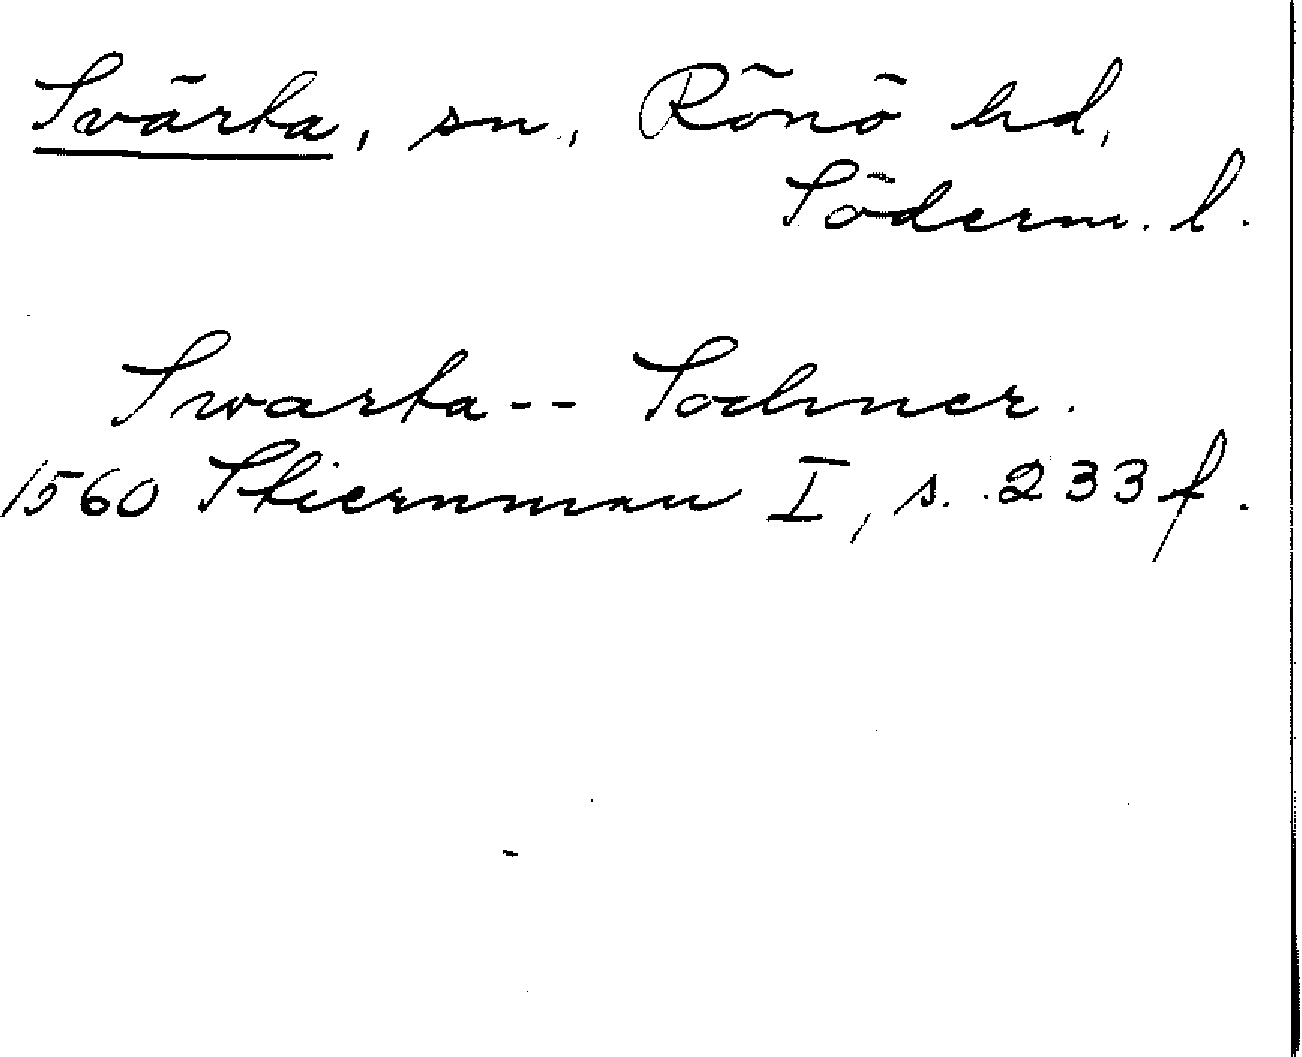 Svärta, sn, Rönö hd,
Söderm. l.
Swarta -- Sochner.
1560 Stiernman I, s. 233 f.